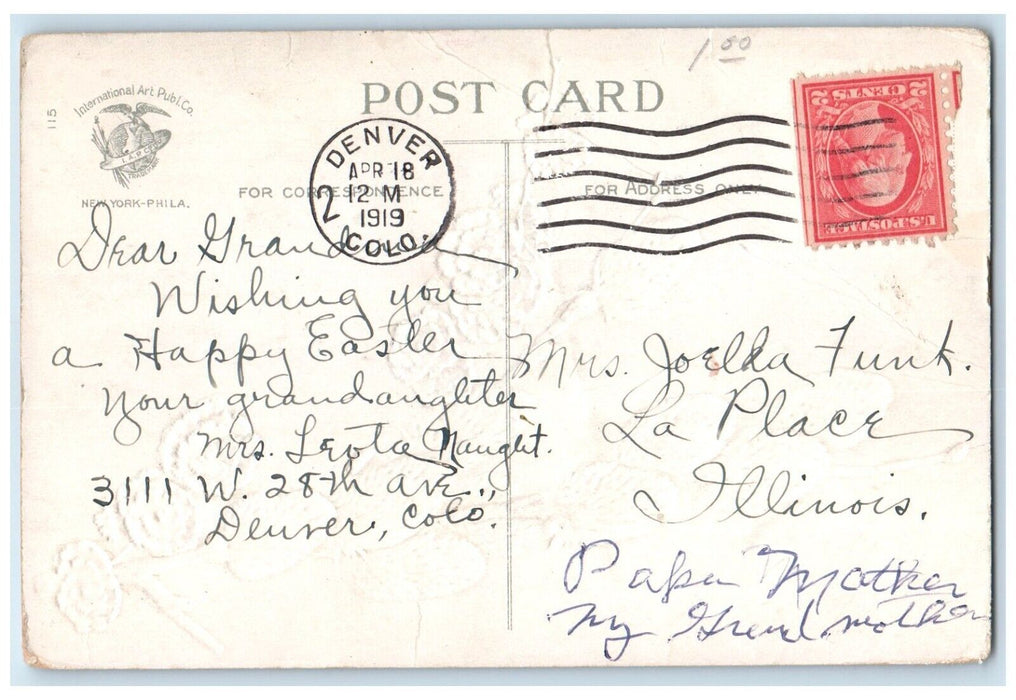 1.00
115
International Art Publ. Co.
I.A.P.Co.
NEW YORK-PHILA.
POST CARD
DENVER
APR 18
12 M
1919
COLO.
2
2 CENTS 2
U.S. POSTAGE
FOR CORRESPONDENCE
FOR ADDRESS ONLY
Dear Grandma
Wishing you
a Happy Easter
Your grandaughter
Mrs. Leota Naught.
3111 W. 28th ave.,
Denver, Colo.
Mrs. Joelda Funk.
La Place
Illinois.
Papa Mother
my Grend mother